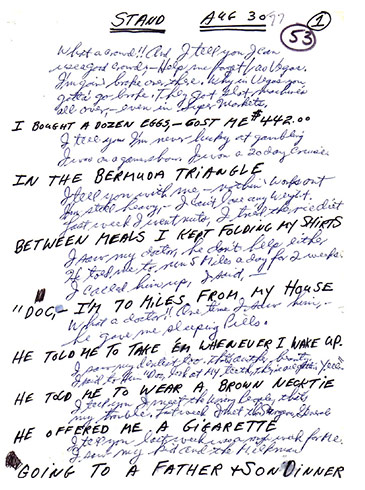 STAND AUG 30 97 1
53
What a crowd!! And I tell you I can
use a good crowd - Help me forget Las Vegas.
I'm goin' broke over there. Why in Vegas you
gotta' go broke. They got slot machines
all over - even in Super Markets.
I BOUGHT A DOZEN EGGS, - COST ME $442.00
I tell you I'm never lucky at gambling
I was on a game show. I won a 20 day cruise
IN THE BERMUDA TRIANGLE
I tell you with me, - nothin' works out
I'm still heavy. - I can't lose any weight.
Last week I went nuts, I tried the rice diet
BETWEEN MEALS I KEPT FOLDING MY SHIRTS
I saw my doctor, he don't help either
He told me to run 5 miles a day for 2 weeks.
I called him up, I said,
"DOC, I'M 70 MILES FROM MY HOUSE
What a doctor!! One time I saw him, -
he gave me sleeping pills.
HE TOLD ME TO TAKE 'EM WHENEVER I WAKE UP.
I saw my dentist too. That's another beauty
I said to him "Doc, look at my teeth, they're all yellow"
HE TOLD ME TO WEAR A BROWN NECKTIE
I tell you I meet the wrong people, that's
my trouble. Last week I met the Surgeon General
HE OFFERED ME A CIGARETTE
I tell you last week was rough week for me.
I saw my kid and the milkman
GOING TO A FATHER + SON DINNER